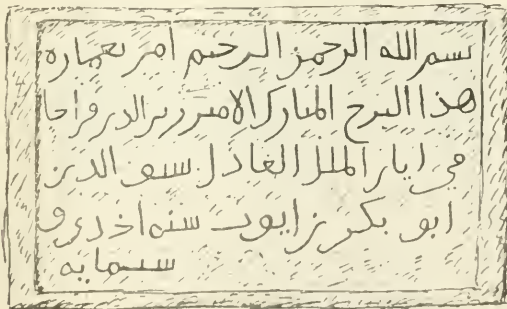 بسم الله الرحمن الرحيم امر بعمارة
هذا البرج المبارك الامير الدين قراجا
في ايام الملك العادل سيف الدين
ابو بكر بن ايوب سنه احدى و
ستمايه